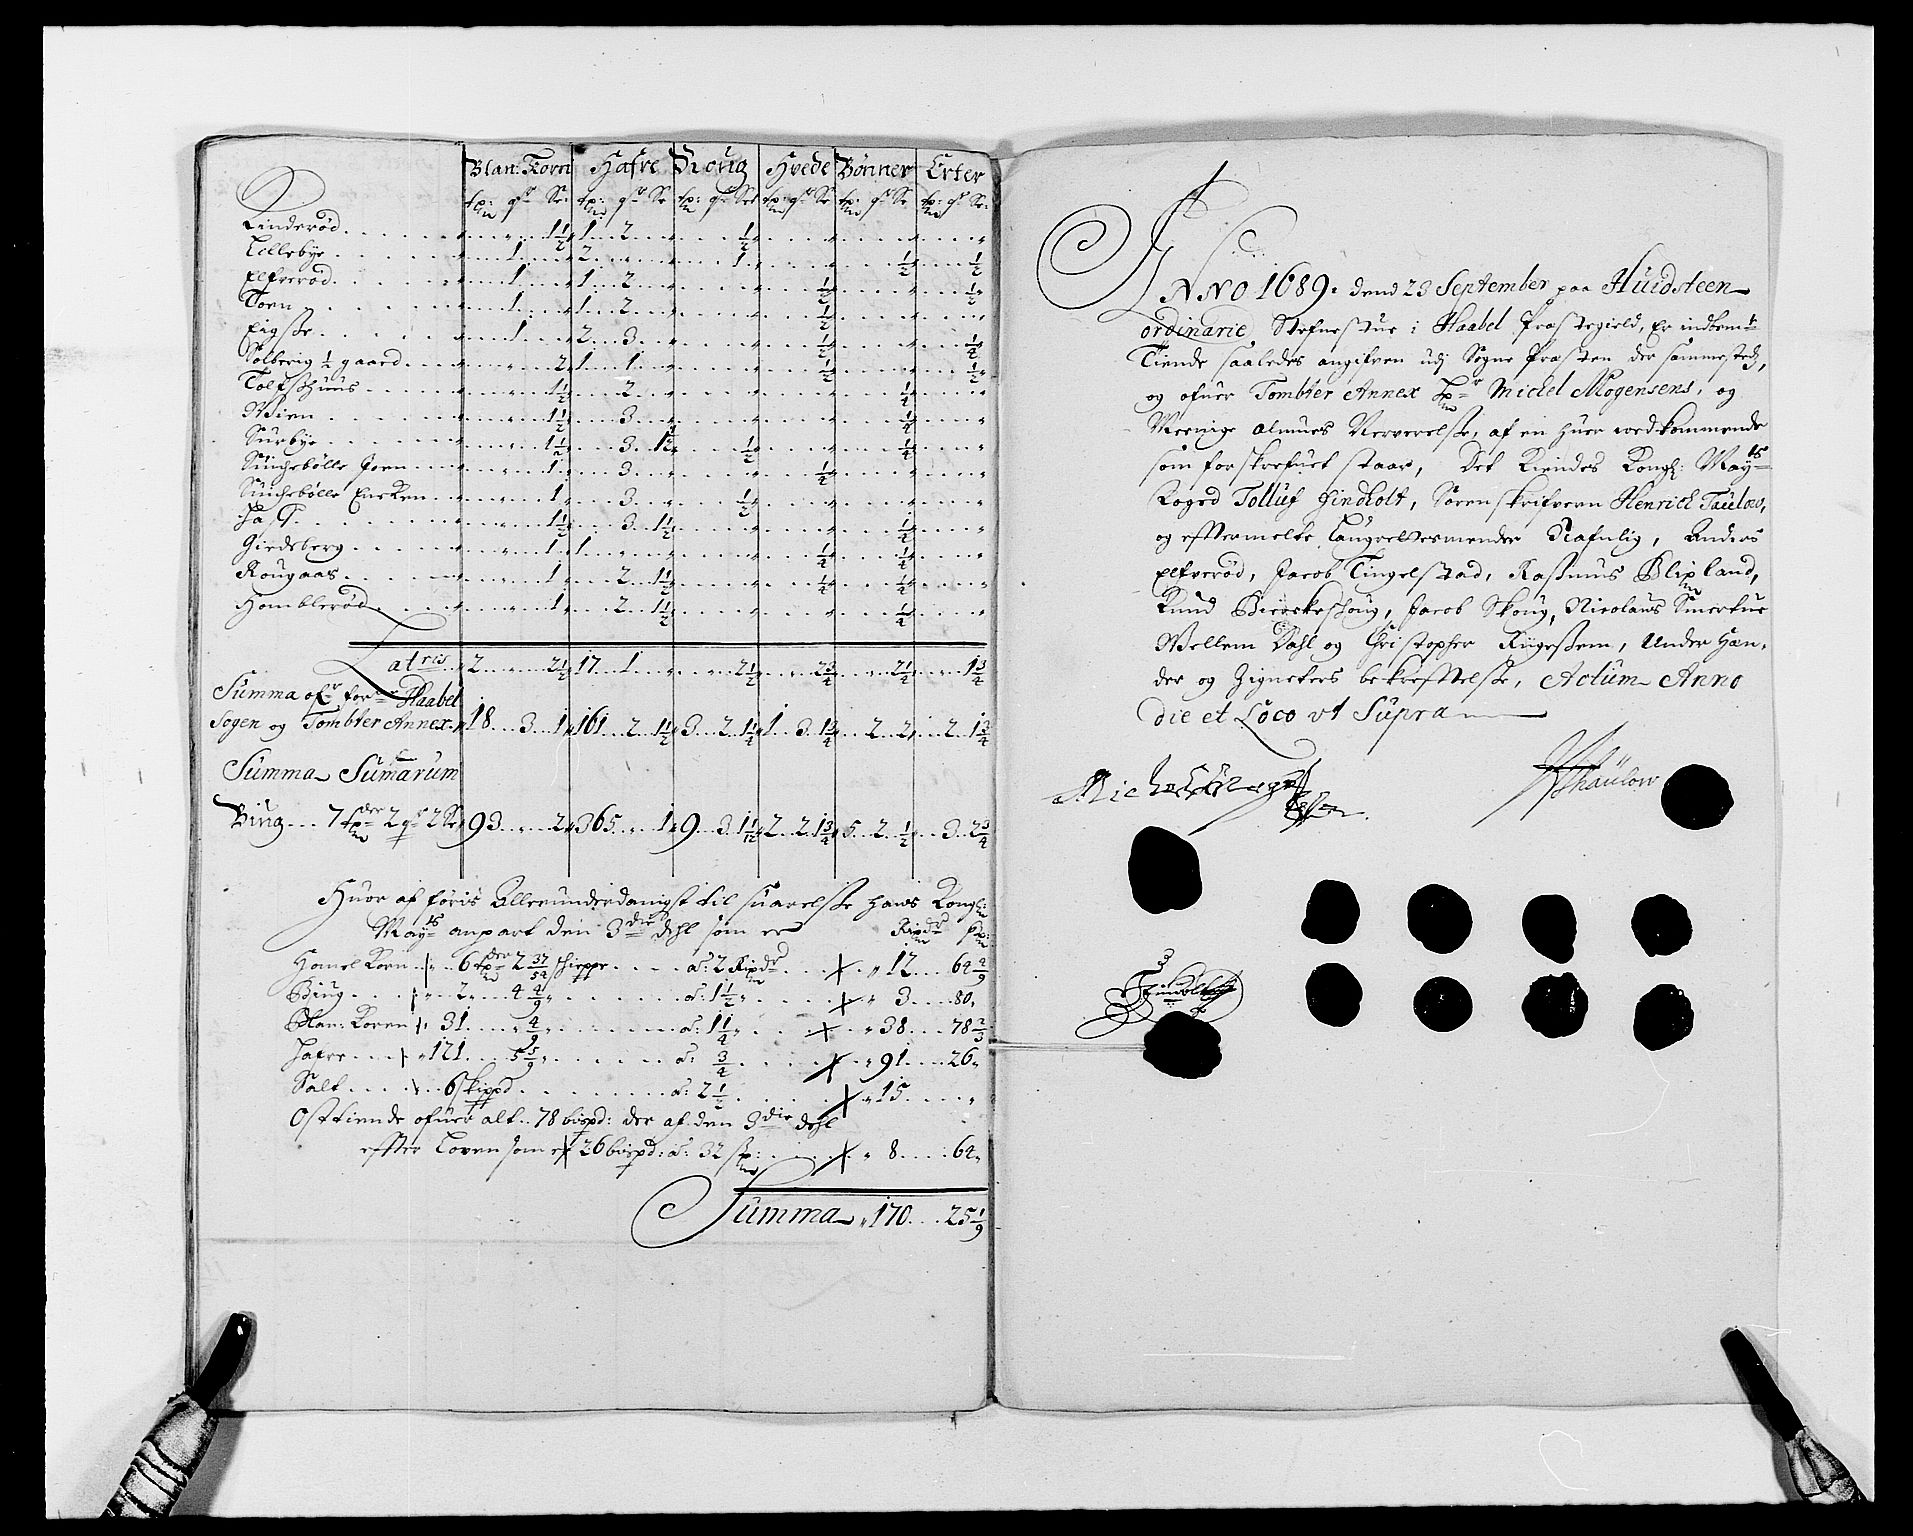 Blan: Korn Hafre Roug Hvede Bønner Erter
tp: qr Se: tp: qr Se tp: qr Se: tp: qr Se tp: qr Se tp: qr Se:
Linderød 1½ 1 2 ½
Lillebye 1 2 1 ½ ½
Elfverød 1 1 2 ½ ½
Torn 1 1 2 ½
Eigsse 1 2 3 ½ ½
Solberig ½ gaard 2 1 1 ½ ½
Tolfshuus 1½ 2 ¼
Mien 1½ 3 ¼
Surbye 1½ 3 1½ ½ ¼
Sinchebølle Joen 1 3 ½
Sinchebølle Encken 1 3 ½
1½ 3 1½ ½
Giedsberg 1 1 ½ ½
Rougaas 1 2 1½ ¼ ¼
Homblerød 1 2 1½ ¼
Latris 2 2½ 17 1 2½ 2¾ 2½ 1¾
Summa ofr forne Haabel
Sogen og Tombter Annex 18 3 1 161 2 1½ 3 2 1¼ 1 3 1¾ 2 2 2 1¾
Summa Sumarum
Biug 7 tder 2 qr 2 Se 93 2 365 1 9 3 1 1/12 2 2 1¾ 5 2 ½ 3 2¾
Huor af føris Allerunderdanigst til suarelsse hans Kongl:
Mayts anpart den 3die dehl som er Rixdr sk:
Homel Korn 6 tder 2 37/54 schieppe a: 2 Rixdr 12 64 4/9
Biug 2 4 4/9 a: 1½ 3 80
Blan: Koren 31 4/9 a: 1¼ 38 78 2/3
Hafre 121 5 5/9 a: ¾ 91 26
Salt 6 skippd a: 2½ 15
Osttiende ofuer alt 78 bispd: der af den 3die dehl
effter Loven som er 26 bispd: a: 32 sk: 8 64
Summa 170 25 1/9
ANNO 1689. dend 23 September paa Huidsteen
ordinarie Stefnestue i Haabel Præstegield, Er indbemte
Tiende saaledes angifven udj Sogne Præsten der sammesteds,
og ofuer Tombter Annex Hr Michel Mogensens, og
Meenige Almues Nerverelsse, af en huer ved kommende
som forskrefuet staar, Det Kiendes Kongl: Mayts
Foged Tolluf Hindholt, Sorenskrifveren Henrick Taulow,
og effermelte Laugrettesmender Nafnlig, Anders
Elfverød, Jacob Tingelstad, Rasmus Blixland,
Knud Bierkeschoug, Jacob Skoug, Nicolaus Smerkue
Wellem Dahl og Christopher Riigessem, Under Hæn,
der og Zigneters bekreffttelsse, Actum Anno
die et Loco vt Supra
HThaulow